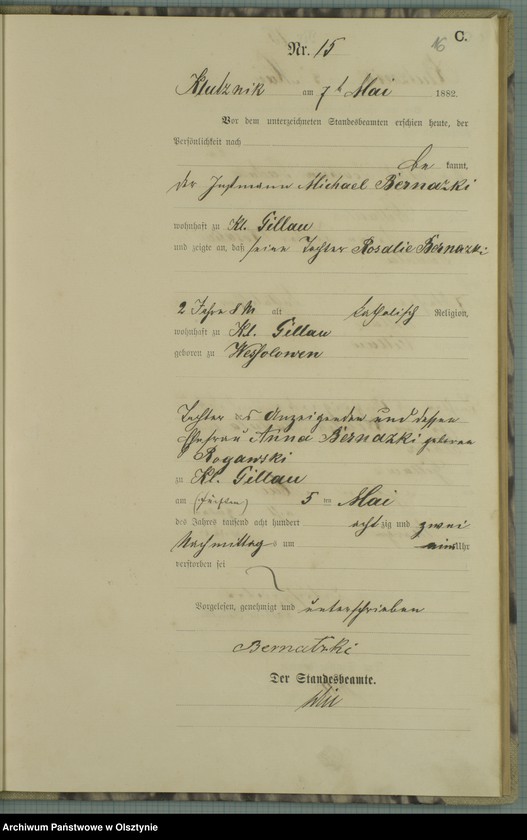 16 C.
Nr. 15
Klutznik am 7t Mai 1882.
Vor dem unterzeichneten Standesbeamten erschien heute, der
Persönlichkeit nach
be kannt,
der Instmann Michael Bernazki
wohnhaft zu Kl. Gillau
und zeigte an, daß seine Tochter Rosalie Bernazki
2 Jahre 8 M alt katholisch Religion,
wohnhaft zu Kl. Gillau
geboren zu Wessolowen
Tochter des Anzeigenden und dessen
Ehefrau Anna Bernazki geborene
Rogawski
zu Kl. Gillau
am (fünften) 5 ten Mai
des Jahres tausend acht hundert acht zig und zwei
Nachmittag s um ein Uhr
verstorben sei
Vorgelesen, genehmigt und unterschrieben
Bernatzki
Der Standesbeamte.
Archiwum Państwowe w Olsztynie